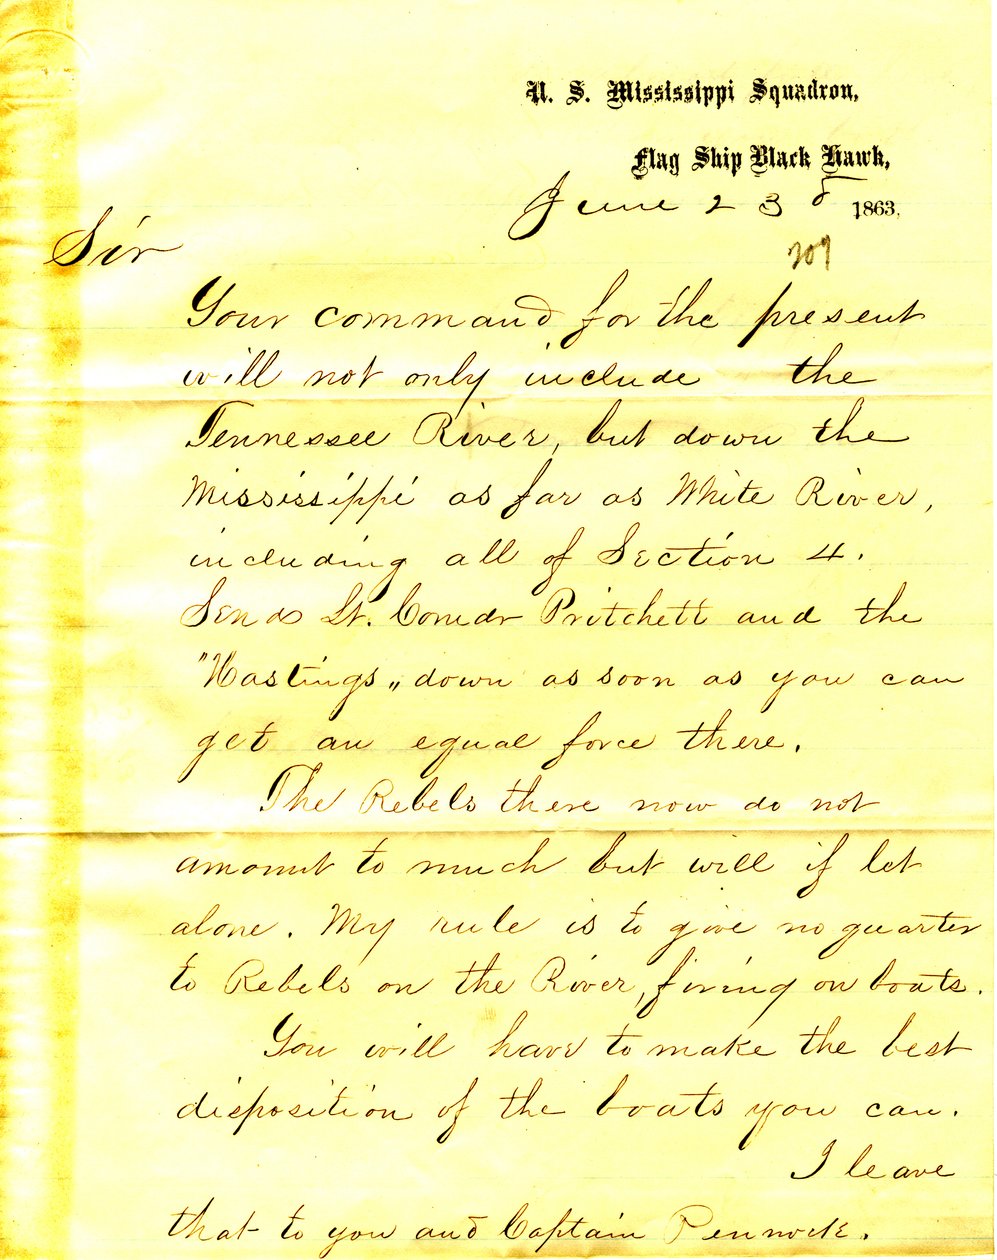 U. S. Mississippi Squadron,
Flag Ship Black Hawk,
June 23d 1863.
207
Sir
Your command for the present
will not only include the
Tennessee River, but down the
Mississippi as far as White River,
including all of Section 4.
Send Lt. Comdr Pritchett and the
"Hastings" down as soon as you can
get an equal force there.
The Rebels there now do not
amount to much but will if let
alone. My rule is to give no quarter
to Rebels on the River, firing on boats.
You will have to make the best
disposition of the boats you can.
I leave
that to you and Captain Pennock.